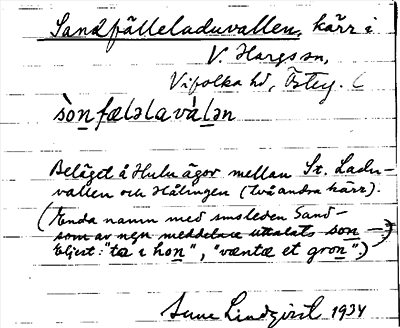 Sandfälleladuvallen, kärr i
V. Hargs sn,
Vifolka hd, Östg.
sònfælǝlavàlǝn
Beläget å Hulu ägor mellan St. Ladu-
vallen och Hålingen (två andra kärr).
(Enda namn med smsleden Sand-
som av ngn meddelare uttalats son-
Eljest: "ta i hon", "væntæ et gron".)
Sune Lindqvist 1934